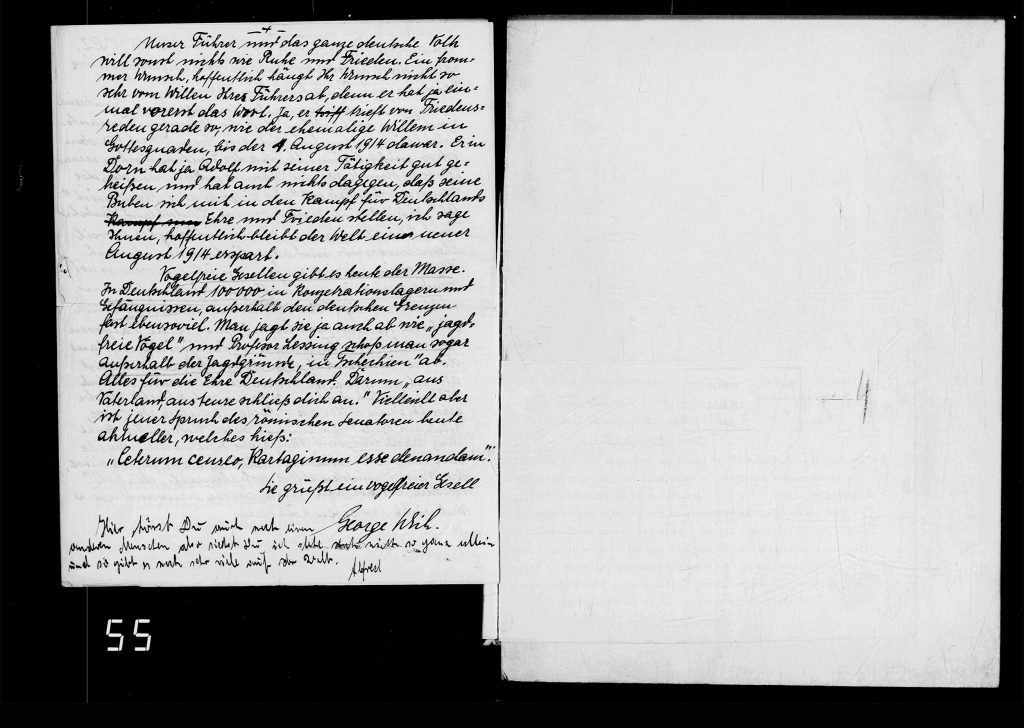 - 4 -
Unser Führer und das ganze deutsche Volk
will sonst nichts wie Ruhe und Frieden. Ein from-
mer Wunsch, hoffentlich hängt Ihr Wunsch nicht so
sehr vom Willen Ihres Führers ab, denn er hat ja ein-
mal vorerst das Wort. Ja, er trieft von Friedens-
reden gerade so, wie der ehemalige Willem in
Gottesgnaden, bis der 4. August 1914 da war. Er in
Dorn hat ja Adolf mit seiner Tätigkeit gut ge-
heißen und hat auch nichts dagegen, daß seine
Buben sich mit in den Kampf für Deutschlands
Kampf um Ehre und Frieden stellen, ich sage
Ihnen, hoffentlich bleibt der Welt ein neuer
August 1914 erspart.
Vogelfreie Gesellen gibt es heute der Masse.
In Deutschland 100000 in Konzetrationslagern und
Gefängnissen, außerhalb den deutschen Grenzen
fast ebensoviel. Man jagt sie ja auch ab wie „jagd-
freie Vögel" und Profesor Lessing schoß man sogar
außerhalb der Jagdgründe, in Tschechien" ab.
Alles für die Ehre Deutschland. Darum „aus
Vaterland, aus teure schließ dich an." Vielleicht aber
ist jener Spruch des römischen Senatoren heute
aktueller, welches hieß:
„Ceterum censeo, Kartaginum esse denandam".
Sie grüßt ein vogelfreier Gesell
George
Hier hörst Du auch noch einen
anderen Menschen also siehst Du ich stehe nicht so ganz allein
und so gibt es noch sehr viele auf der Welt.
Alfred
4
55